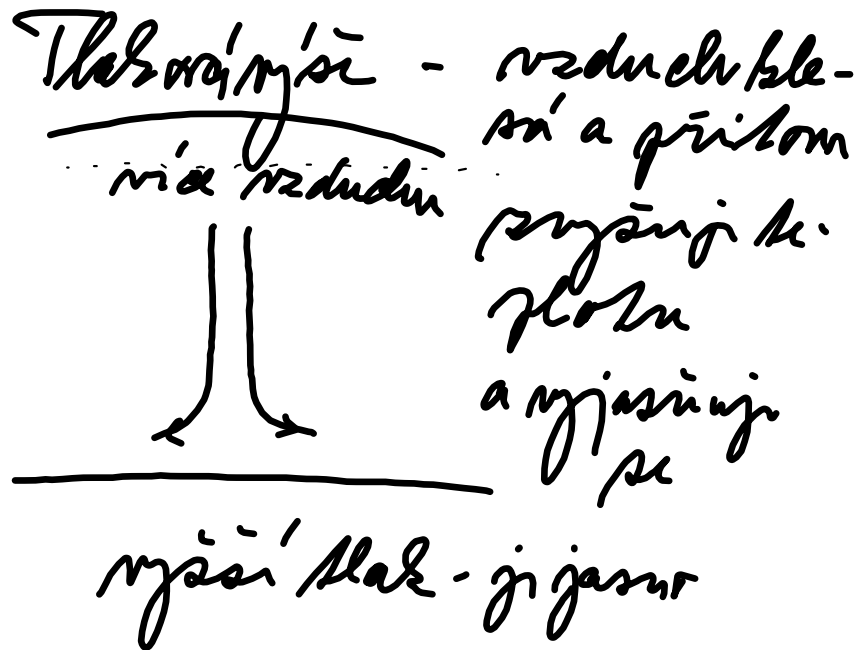 Tlaková výše - vzduch kle-
sá a přitom
zvyšuje te-
plotu
a vyjasňuje
se
více vzduchu
vyšší tlak - je jasno